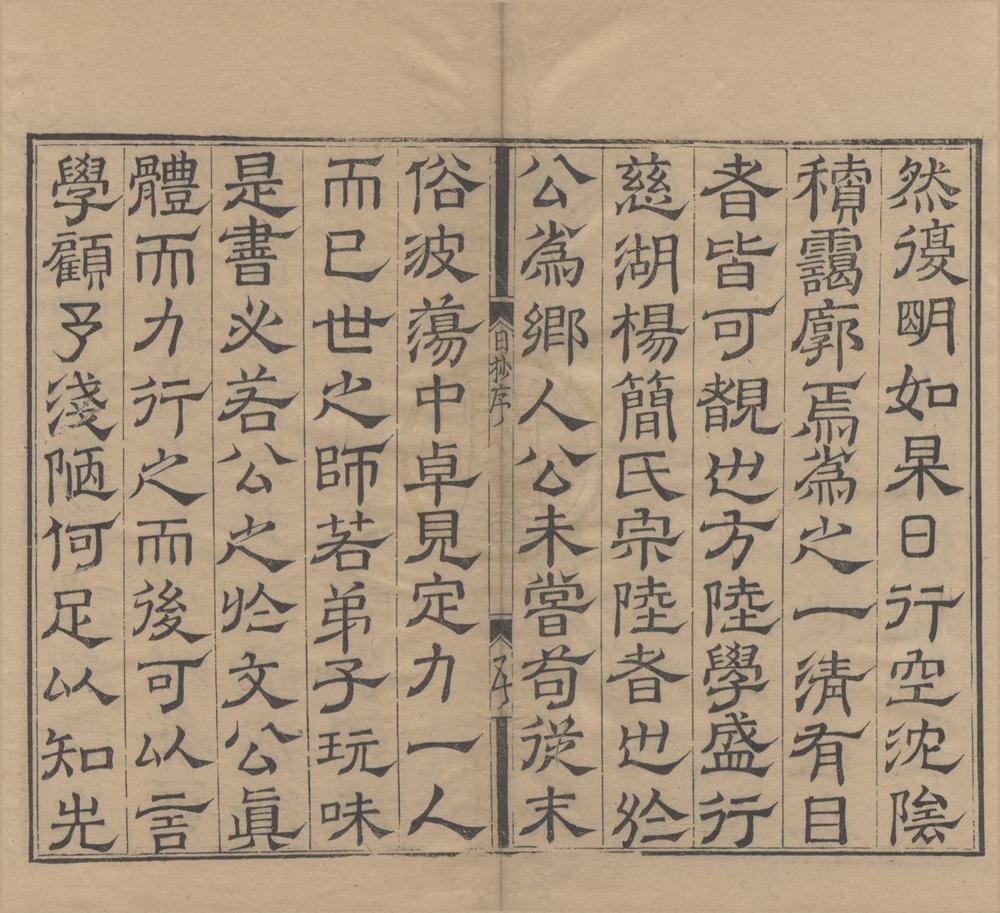 然復明如杲日行空沈陰
積靄廓焉為之一清有目
者皆可覩也方陸學盛行
慈湖楊簡氏宗陸者也於
公為鄉人公未嘗苟從末
日抄序
五
俗波蕩中卓見定力一人
而已世之師若弟子玩味
是書必若公之於文公眞
體而力行之而後可以言
學顧予淺陋何足以知先